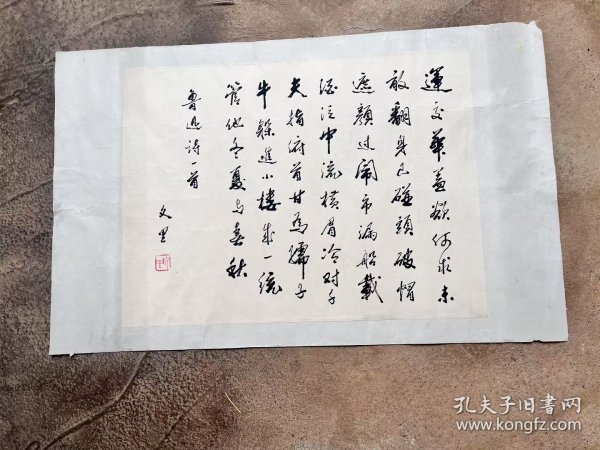 運交華蓋欲何求未
敢翻身已碰頭破帽
遮顏過鬧市漏船載
酒泛中流橫眉冷對千
夫指俯首甘為孺子
牛躲進小樓成一統
管他冬夏与春秋
魯迅詩一首
文里
孔夫子旧书网
www.kongfz.com